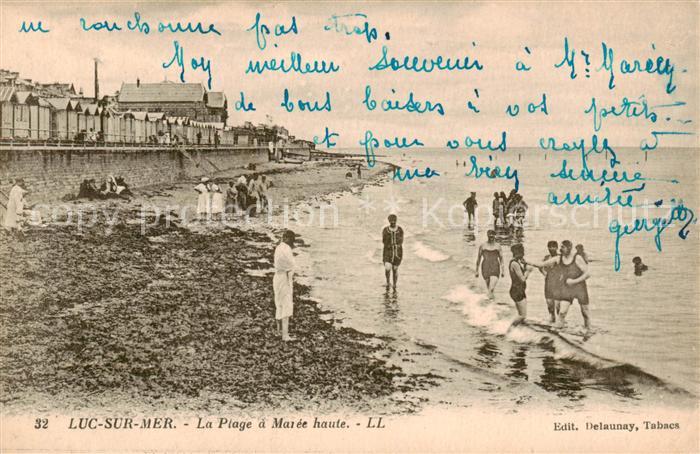 ne ronchonne pas trop.
Moy meilleur Souvenir à Mr Marécy
de bons baisers à vos petits
et pour vous croyez à
ma bien sincère
amitié
Georgette
32 LUC-SUR-MER. - La Plage à Marée haute. - LL
Edit. Delaunay, Tabacs